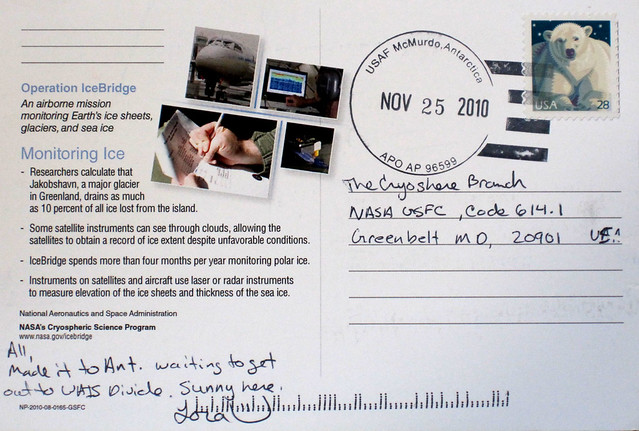 Operation IceBridge
An airborne mission
monitoring Earth's ice sheets,
glaciers, and sea ice
Monitoring Ice
- Researchers calculate that
Jakobshavn, a major glacier
in Greenland, drains as much
as 10 percent of all ice lost from the island.
- Some satellite instruments can see through clouds, allowing the
satellites to obtain a record of ice extent despite unfavorable conditions.
- IceBridge spends more than four months per year monitoring polar ice.
- Instruments on satellites and aircraft use laser or radar instruments
to measure elevation of the ice sheets and thickness of the sea ice.
National Aeronautics and Space Administration
NASA's Cryospheric Science Program
www.nasa.gov/icebridge
All,
Made it to Ant. waiting to get
out to WAIS Divide. Sunny here.
Lora
NP-2010-08-0165-GSFC
USAF McMurdo, Antarctica
NOV 25 2010
APO AP 96599
USA 28
The Cryoshere Branch
NASA GSFC, Code 614.1
Greenbelt MD, 20901